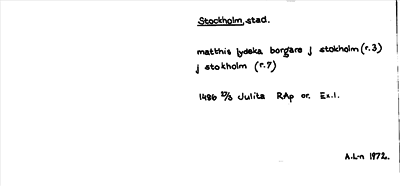 Stockholm, stad.
matthis lydeka borgare j stokholm (r.3)
j stokholm (r.7)
1486 27/3 Julita RAp or. Ex.1.
A.L-n 1972.